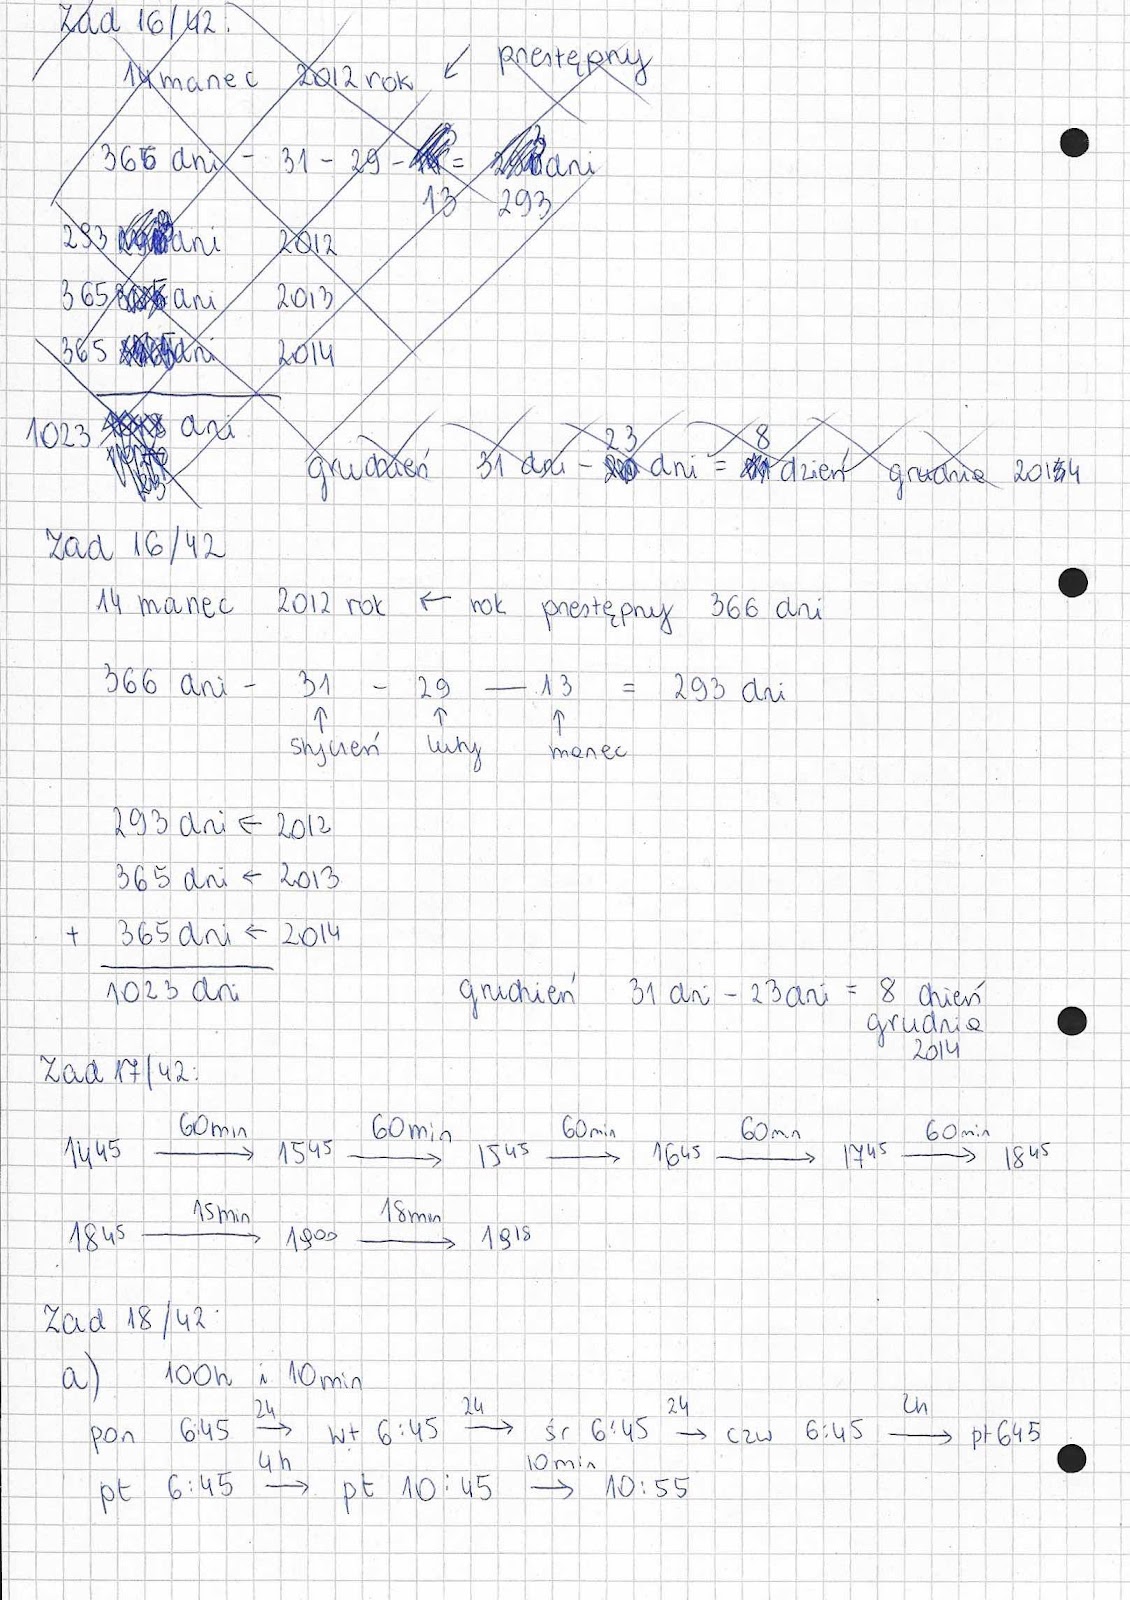 Zad 16/42:
14 marzec 2012 rok ↙ przestępny
366 dni - 31 - 29 - = dni
13 293
293 dni 2012
365 dni 2013
365 dni 2014
1023 dni
23 8
grudzień 31 dni - dni = dzień grudnia 2014
Zad 16/42
14 marzec 2012 rok ← rok przestępny 366 dni
366 dni - 31 - 29 - 13 = 293 dni
↑ ↑ ↑
styczeń luty marzec
293 dni ← 2012
365 dni ← 2013
+ 365 dni ← 2014
1023 dni grudzień 31 dni - 23 dni = 8 dzień
grudnia
2014
Zad 17/42:
60min 60min 60min 60mn 60min
14⁴⁵ → 15⁴⁵ → 15⁴⁵ → 16⁴⁵ → 17⁴⁵ → 18⁴⁵
15min 18min
18⁴⁵ → 19⁰⁰ → 19¹⁸
Zad 18/42:
a) 100h i 10min
24 24 24 24
pon 6:45 → wt 6:45 → śr 6:45 → czw 6:45 → pt 6:45
4h 10min
pt 6:45 → pt 10:45 → 10:55